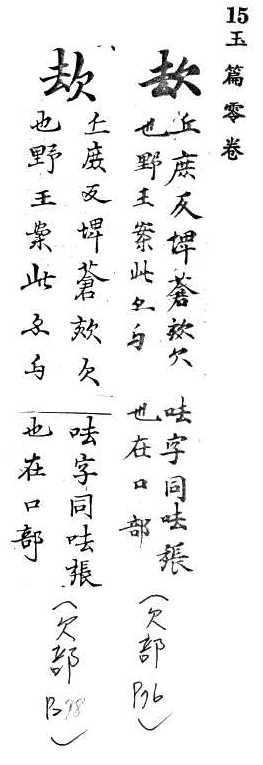 15玉篇零卷
㰦
丘庶反埤蒼欬欠
也野王案此亦与
呿字同呿張
也在口部
(欠部 P96)
㰦
丘庶反埤蒼欬欠
也野王案此亦与
呿字同呿張
也在口部
(欠部 P98)